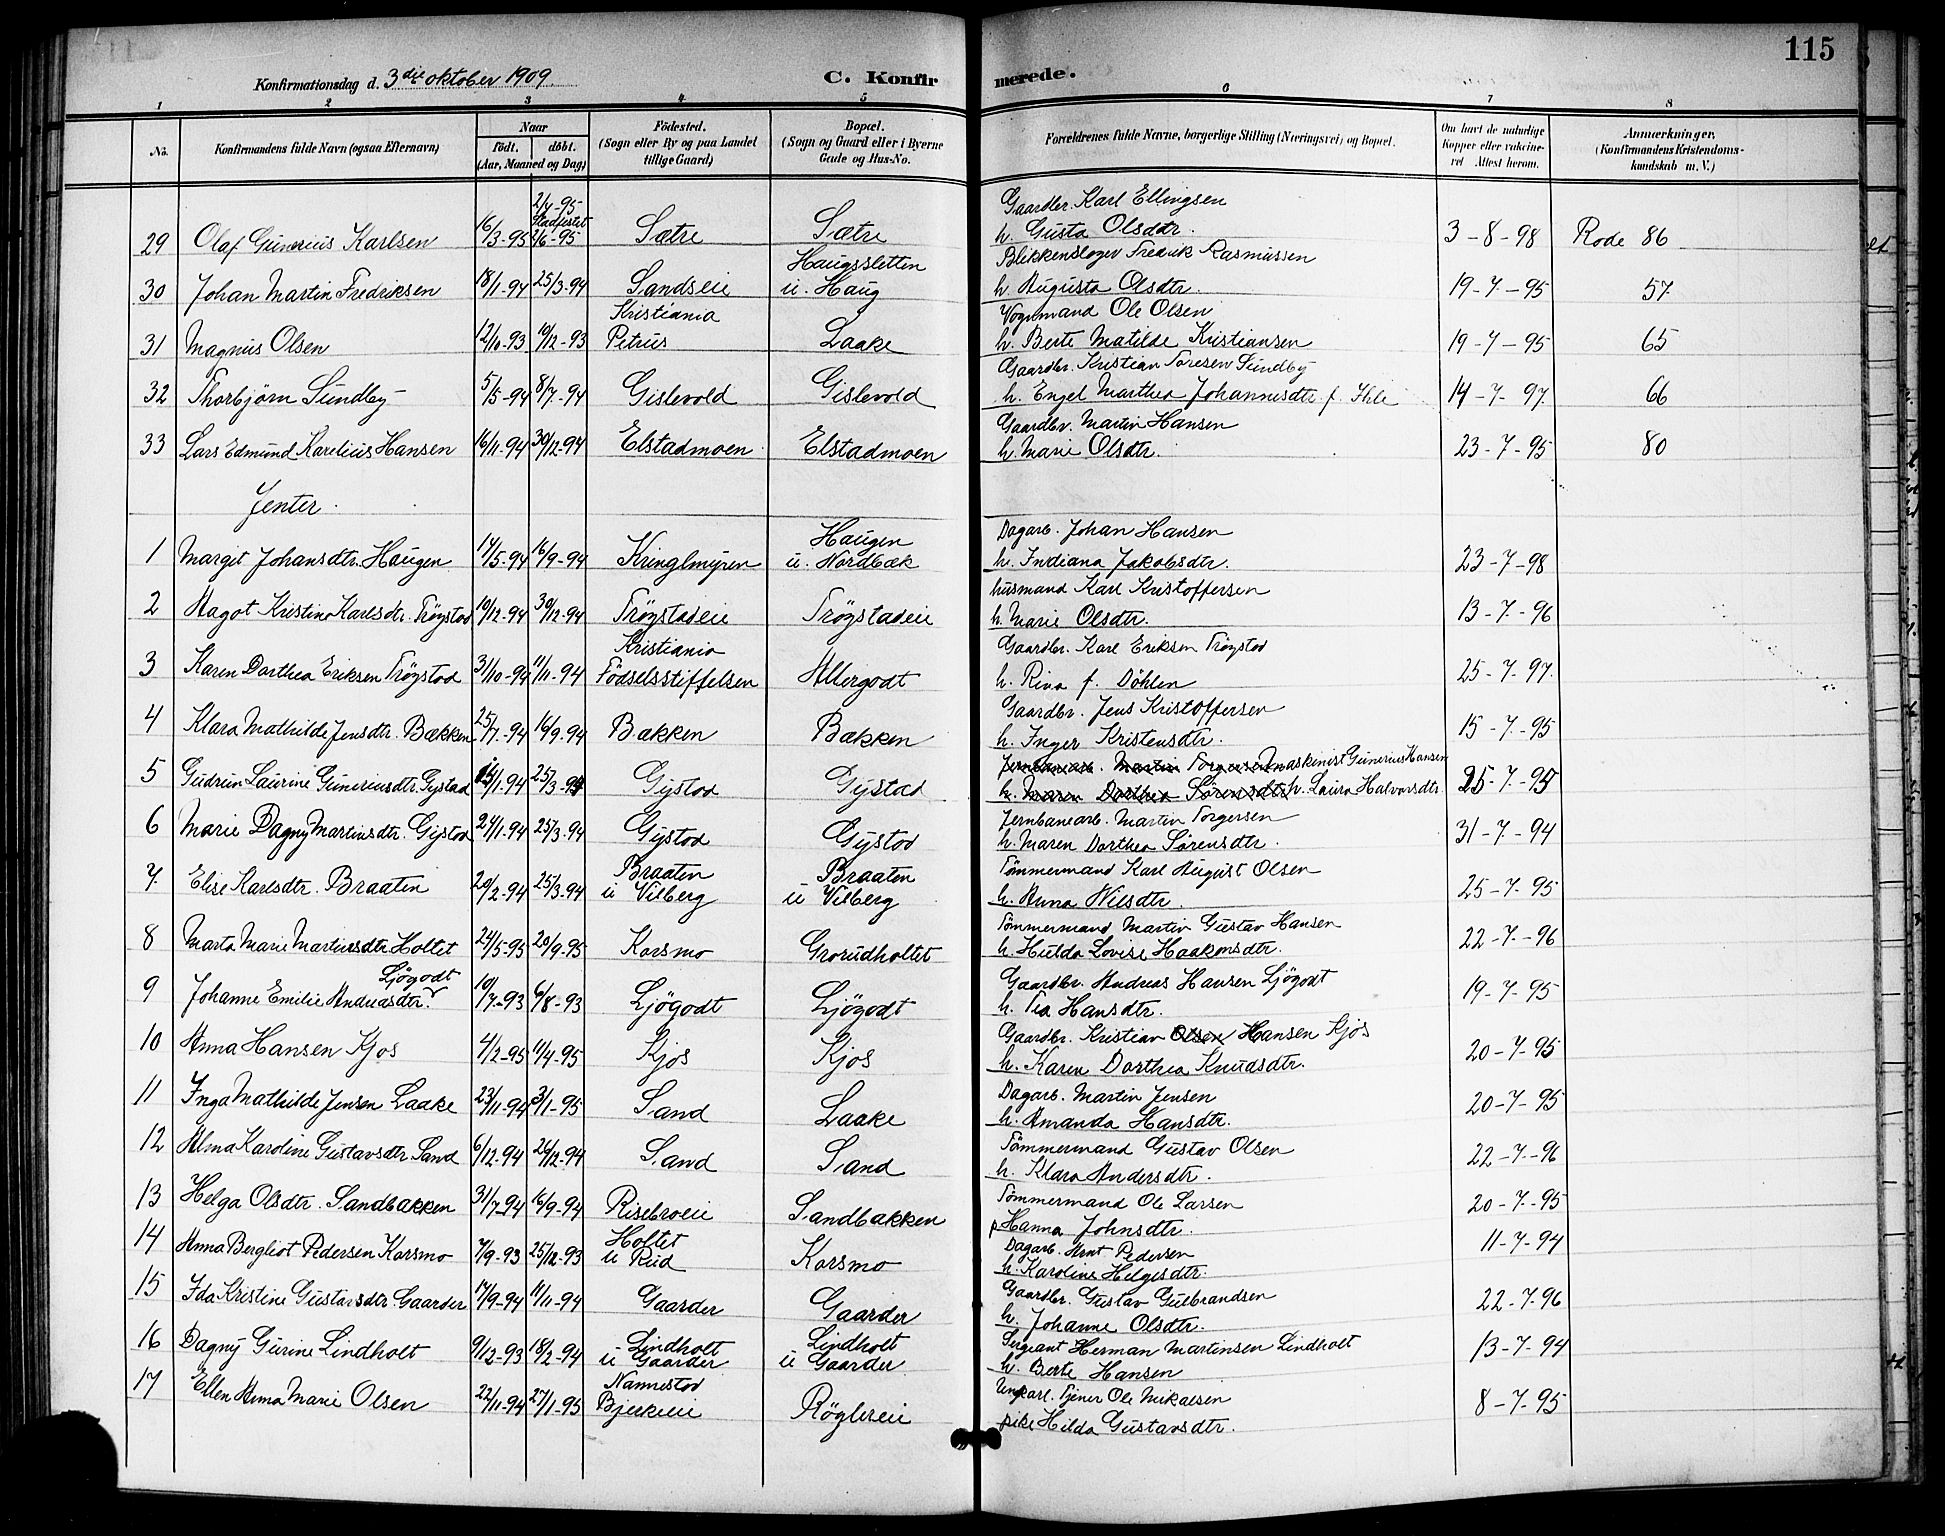 115
Konfirmationsdag d. 3die oktober 1909. C. Konfirmerede.
1 2 3 4 5 6 7 8
No. Konfirmandens fulde Navn (ogsaa Efternavn) Naar Födt. döbt. (Aar, Maaned og Dag) Födested. (Sogn eller By og paa Landet tillige Gaard) Bopæl. (Sogn og Gaard eller i Byerne Gade og Hus-No. Forældrenes fulde Navne, borgerlige Stilling (Næringsvei) og Bopæl. Om havt de naturlige Kopper eller vakcineret Attest herom. Anmærkninger, (Konfirmandens Kristendomskundskab m. V.)
2/4-95 Gaardbr. Karl Ellingsen
29 Olaf Gunerius Karlsen 16/3-95 Stadfestet 2/6-95 Sætre Sætre h. Gusta Olsdtr. 3-8-98 Rode 86
Haugssletten Blikkenslager Fredrik Rasmussen
30 Johan Martin Fredriksen 18/1-94 25/3-94 Sandseie u. Haug h. Augusta Olsdtr. 19-7-95 57
Kristiania Vognmand Ole Olsen
31 Magnus Olsen 12/10-93 10/12-93 Petrus Laake h. Berte Matilde Kristiansen 19-7-95 65
Gaardbr. Kristian Toresen Sundby
32 Thorbjörn Sundby 5/5-94 8/7-94 Gislevold Gislevold h. Engel Marthea Johannesdtr. f. Ihle 14-7-97 66
Gaardbr. Martin Hansen
33 Lars Edmund Karelius Hansen 16/11-94 30/12-94 Elstadmoen Elstadmoen h. Marie Olsdtr. 23-7-95 80
Jenter.
Haugen Dagarb. Johan Hansen
1 Margit Johansdtr. Haugen 14/5-94 16/9-94 Kringlmyren u. Nordbæk h. Indiana Jakobsdtr. 23-7-98
husmand Karl Kristoffersen
2 Hagot Kristine Karlsdtr. Trögstad 10/12-94 30/12-94 Trögstadeie Trögstadeie h. Marie Olsdtr. 13-7-96
Kristiania Gaardbr. Karl Eriksen Trögstad
3 Karen Dorthea Eriksen Trögstad 31/10-94 11/11-94 Födselsstiftelsen Allergodt h. Rina f. Döhlen 25-7-97
Gaardbr. Jens Kristoffersen
4 Klara Mathilde Jensdtr. Bækken 25/7-94 16/9-94 Bækken Bækken h. Inger Kristensdtr. 15-7-95
Jernbanearb. Martin Torgersen Maskinist Gunerius Hansen
5 Gudrun Laurine Guneriusdtr. Gystad 15/1-94 25/3-94 Gystad Gystad h. Maren Dorthea Sörensdtr. h. Laura Halvorsdtr. 25-7-95
Jernbanearb. Martin Torgersen
6 Marie Dagny Martinsdtr. Gystad 24/1-94 25/3-94 Gystad Gystad h. Maren Dorthea Sörensdtr. 31-7-94
Braaten Braaten Tömmermand Karl August Olsen
7 Elise Karlsdtr. Braaten 20/2-94 25/3-94 u Vilberg u Vilberg h. Anna Nilsdtr. 25-7-95
Tömmermand Martin Gustav Hansen
8 Marta Marie Martinsdtr Holtet 24/5-95 20/9-95 Korsmo Grorudholtet h. Hulda Lovise Haakonsdtr. 22-7-96
Ljögodt Gaardbr. Andreas Hansen Ljögodt
9 Johanne Emilie Andreasdtr. 10/7-93 6/8-93 Ljögodt Ljögodt h. Tea Hansdtr. 19-7-95
Gaardbr. Kristian Olsen Hansen Kjos
10 Anna Hansen Kjos 4/2-95 11/4-95 Kjos Kjos h. Karen Dorthea Knudsdtr. 20-7-95
Dagarb. Martin Jensen
11 Inga Mathilde Jensen Laake 23/11-94 3/1-95 Sand Laake h. Amanda Hansdtr. 20-7-95
Tömmermand Gustav Olsen
12 Alma Karoline Gustavsdtr Sand 6/12-94 26/12-94 Sand Sand h. Klara Andersdtr. 22-7-96
Tömmermand Ole Larsen
13 Helga Olsdtr. Sandbakken 31/7-94 16/9-94 Risebroeie Sandbakken p Hanna Johnsdtr. 20-7-95
Holtet Dagarb. Arnt Pedersen
14 Anna Bergliot Pedersen Korsmo 7/9-93 25/12-93 u Rud Korsmo h. Karoline Helgesdtr. 11-7-94
Gaardbr. Gustav Gulbrandsen
15 Ida Kristine Gustavsdtr. Gaarder 17/9-94 11/11-94 Gaarder Gaarder h. Johanne Olsdtr. 22-7-96
Lindholt Lindholt Sergeant Herman Martinsen Lindholt
16 Dagny Gurine Lindholt 9/12-93 18/2-94 u Gaarder u Gaarder h. Berte Hansen 13-7-94
Nannestad Ungkarl. Tjener Ole Mikalsen
17 Ellen Anna Marie Olsen 22/11-94 27/1-95 Bjerkeeie Röglereie pike Hilda Gustavsdtr. 8-7-95